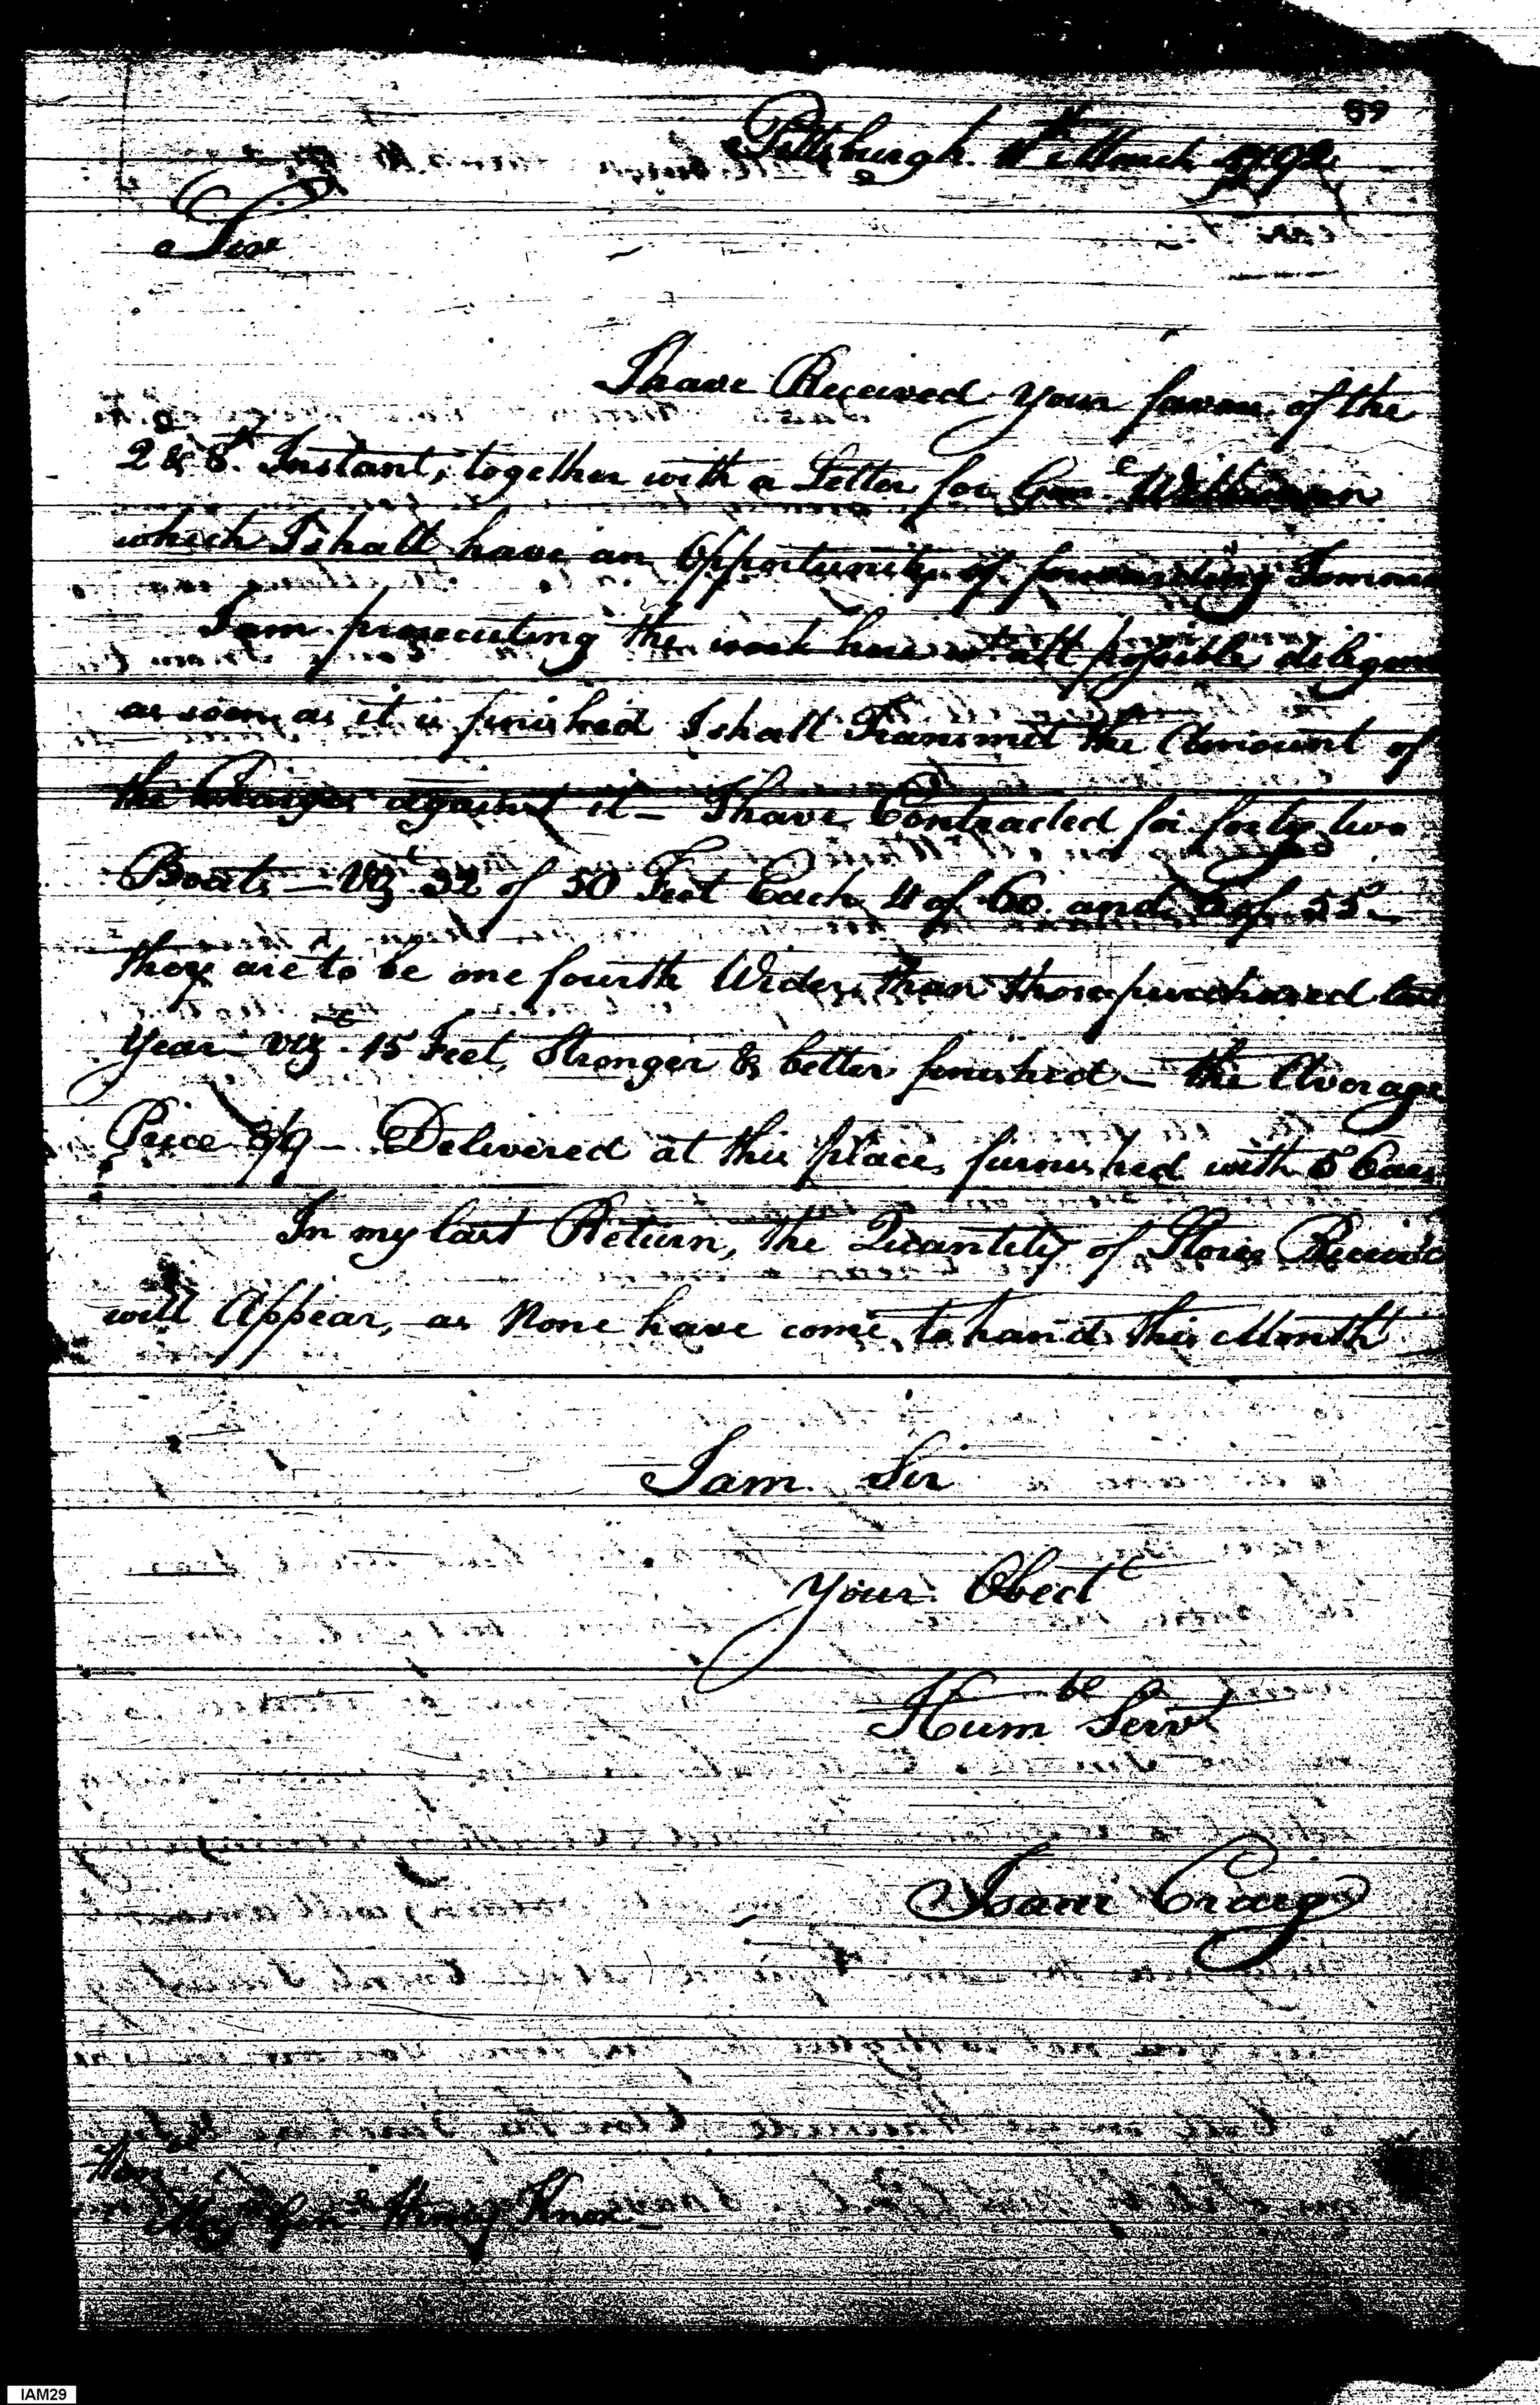 59
Pittsburgh. 11th March 1792
Sir
I have Received your favour of the
2d & 3d. Instant, together with a Letter for Genl. Wilkinson
which I shall have an Opportunity of forwarding Tomorro
I am prosecuting the work here wt. all possible diligenc
as soon as it is finished I shall Transmit the Amount of
the Charges against it — I have Contracted for forty two
Boats — Vizt 32 of 50 Feet Each 4 of 60 and 6 of 55 —
they are to be one fourth Wider than those purchased last
Year — vizt. 15 Feet, Stronger & better finished — the Average
Price 8/9 — Delivered at this place, furnished with 5 Oars
In my last Return, the Quantity of Stores Receiv'd
will Appear, as None have come to hand this Month
I am Sir
Your Obedt
Humbe Servt
Isaac Craig
Honbe
Majr Genl Henry Knox —
IAM29